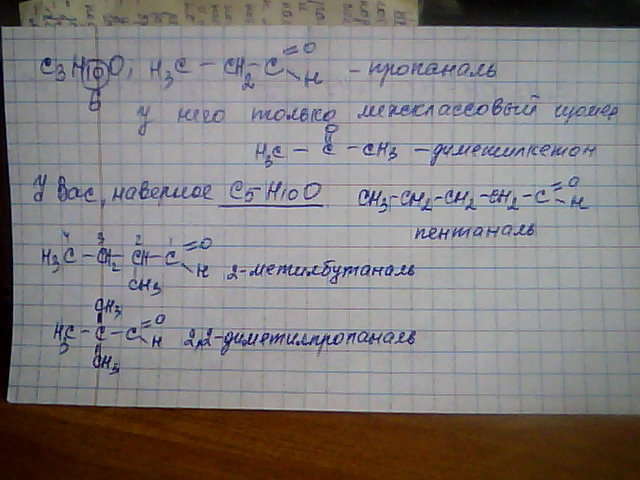 C3H10O; H3C - CH2 - C =O H - пропаналь
6
у него только межклассовый изомер
O
H3C - C - CH3 - диметилкетон
У Вас, наверное C5H10O CH3-CH2-CH2-CH2-C =O H
пентаналь
4 3 2 1
H3C - CH2 - CH - C =O H 2-метилбутаналь
CH3
CH3
H3C - C - C =O H 2,2-диметилпропаналь
CH3